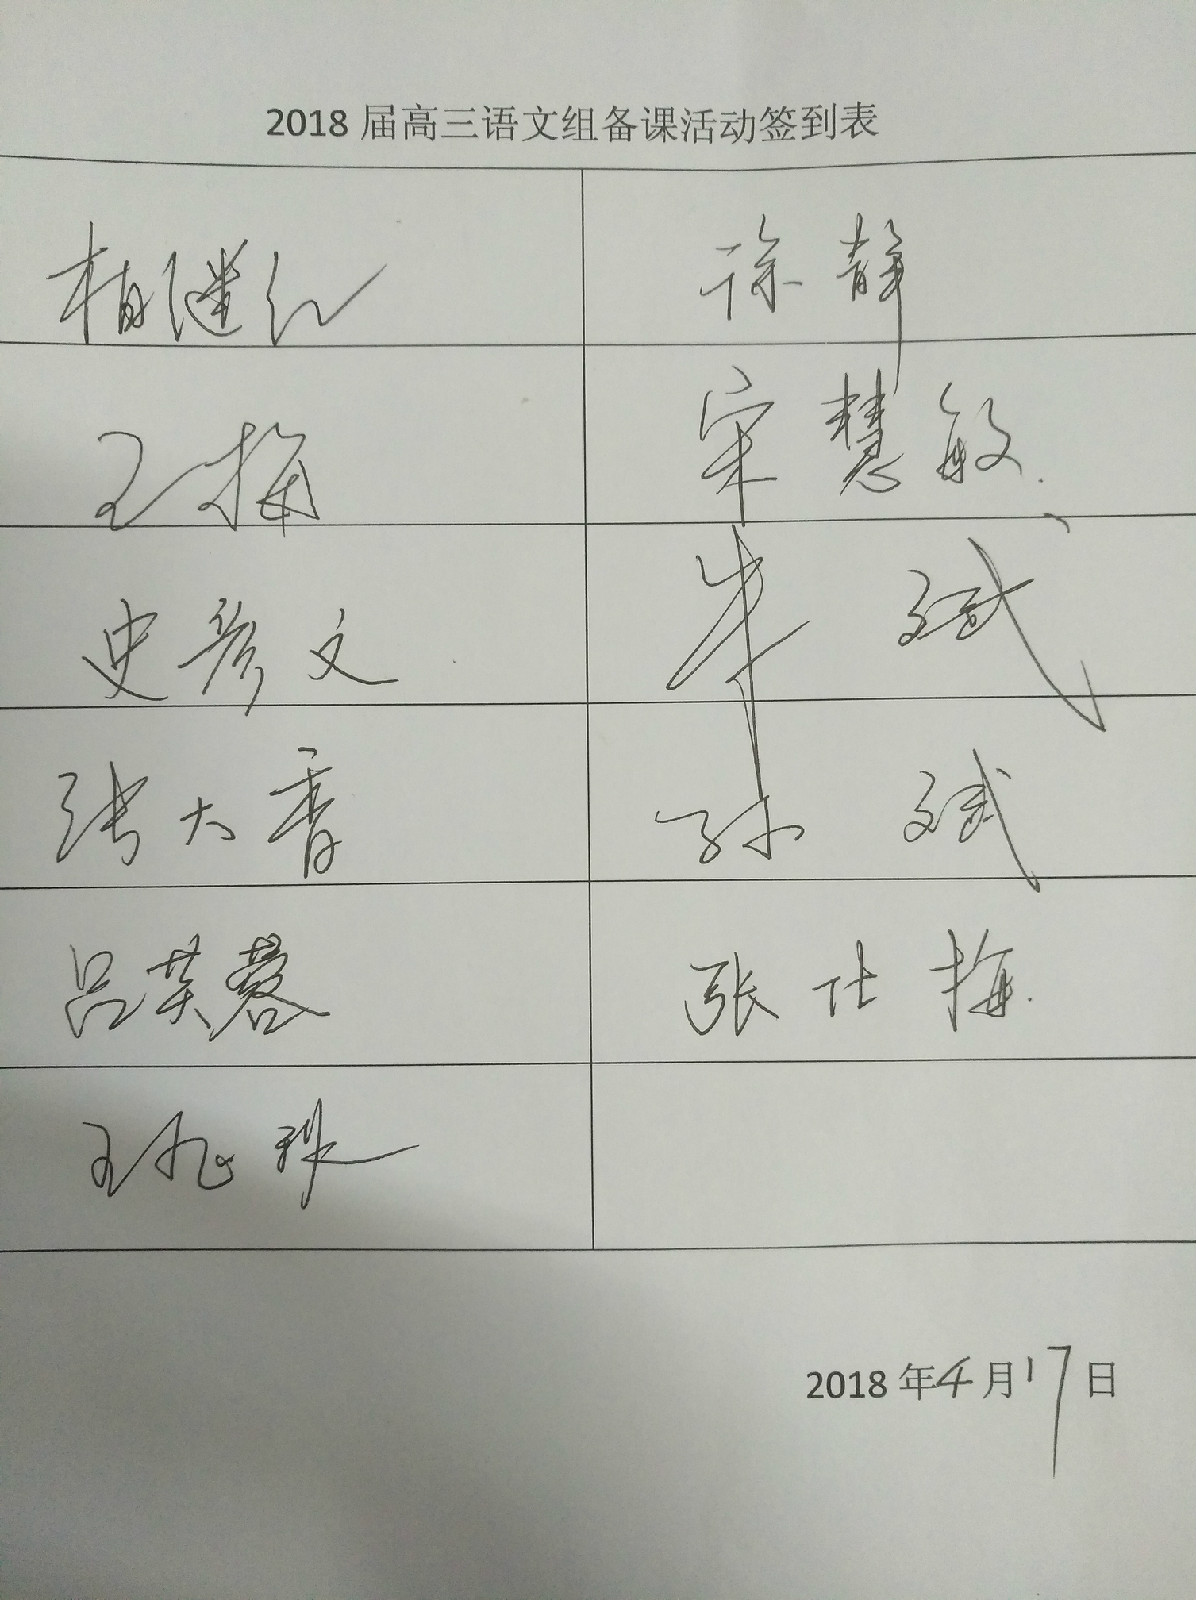 2018 届高三语文组备课活动签到表
柏继红 徐静
王梅 宋慧敏
史彦文 朱斌
张大香 孙斌
吕芙蓉 张仕梅
2018 年 4 月 17 日